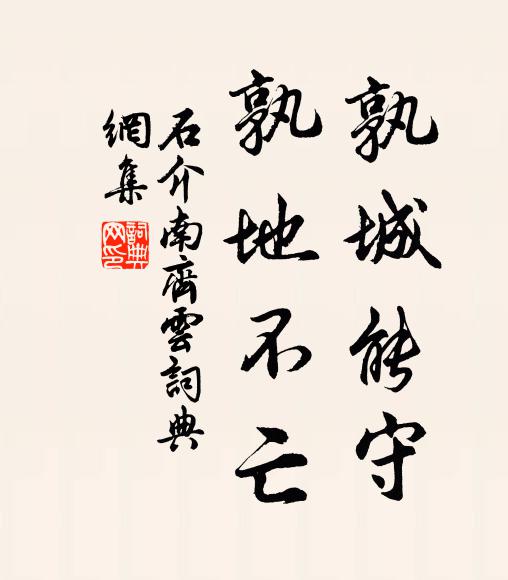 孰城能守
孰地不亡
石介南齊雲詞典
網集
詞典網印